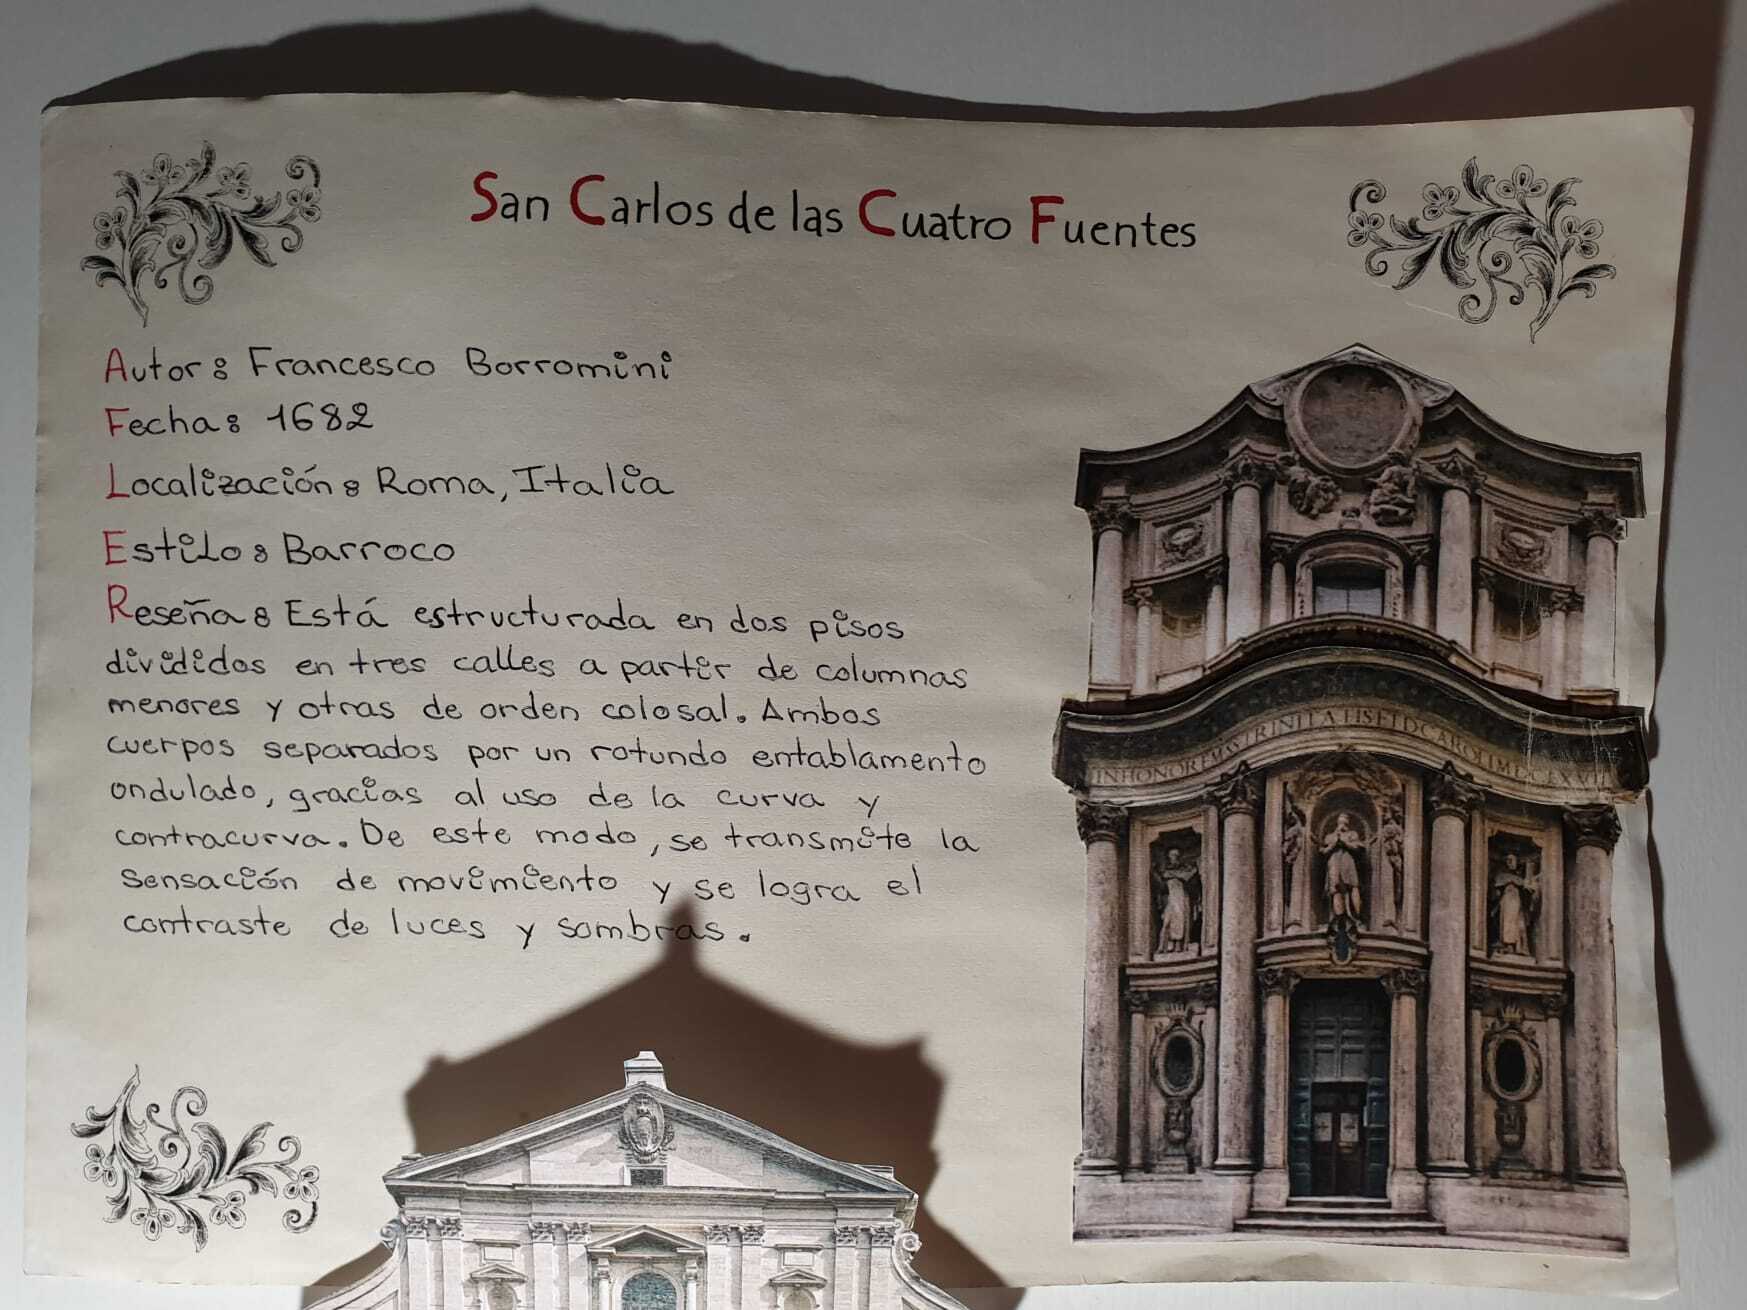 San Carlos de las Cuatro Fuentes
Autor: Francesco Borromini
Fecha: 1682
Localización: Roma, Italia
Estilo: Barroco
Reseña: Está estructurada en dos pisos
divididos en tres calles a partir de columnas
menores y otras de orden colosal. Ambos
cuerpos separados por un rotundo entablamento
ondulado, gracias al uso de la curva y
contracurva. De este modo, se transmite la
sensación de movimiento y se logra el
contraste de luces y sombras.